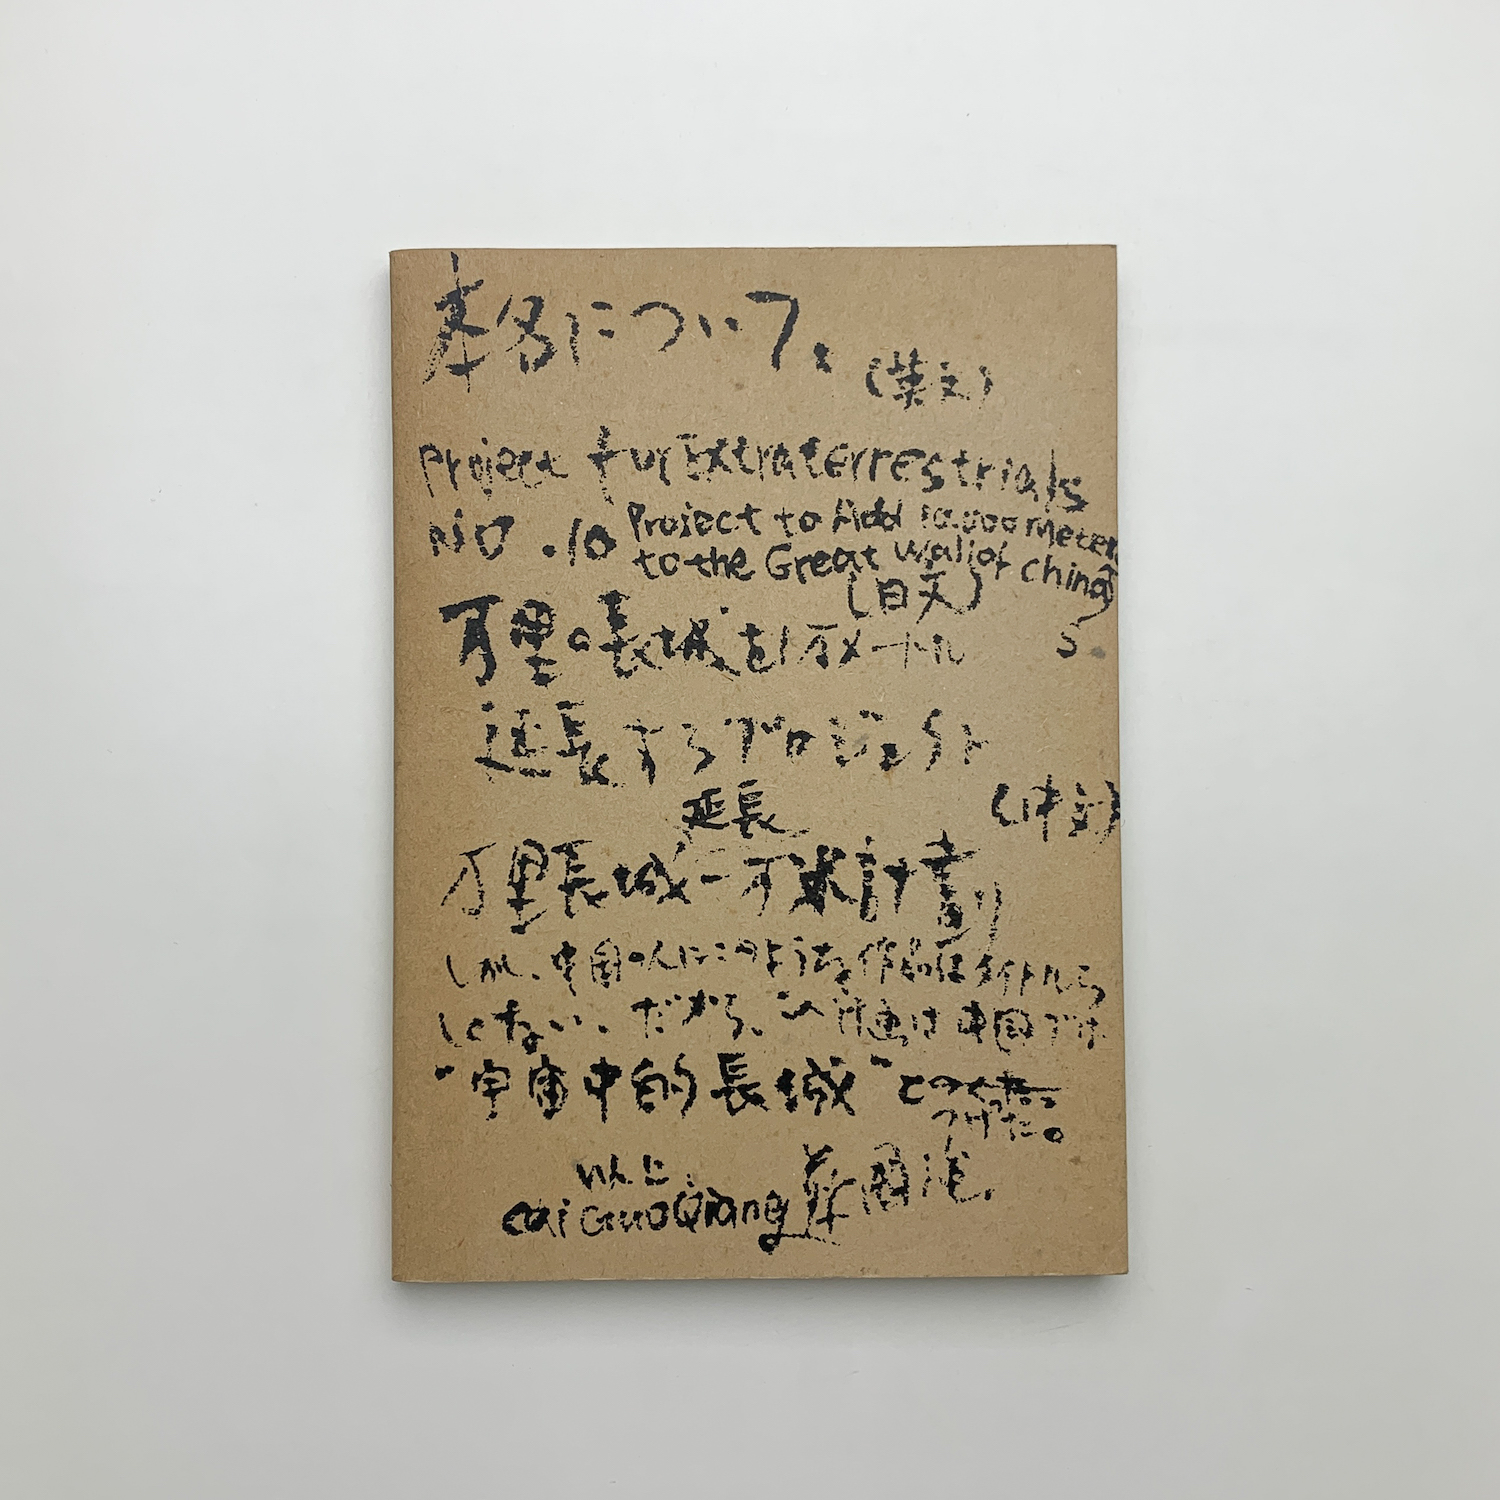 本名について、
(英文)
Project for Extraterrestrials
No.10 Project to Add 10.000 Meters
to the Great Wall of China
(日文)
万里の長城を1万メートル
延長するプロジェクト
(中文)
延長
万里長城一万米計劃
しかし、中国の人はこのような作品はタイトルら
しくない、だから、この計画は中国では
"宇宙中的長城"と
つけた。
以上、
Cai Guo Qiang 蔡國強